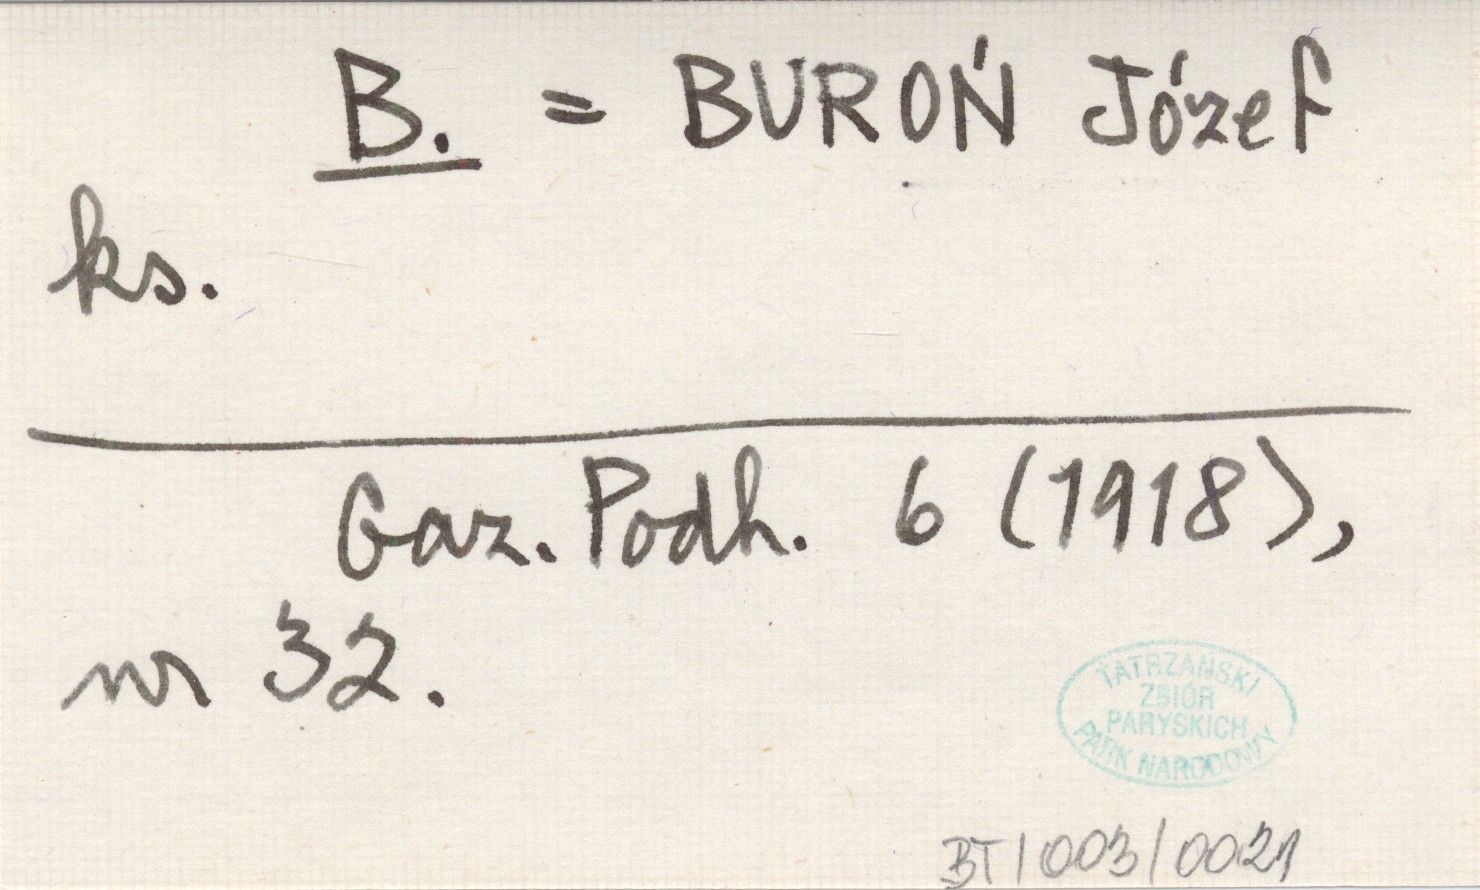 B. = BUROŃ Józef
ks.
Gaz. Podh. 6 (1918),
nr 32.
TATRZAŃSKI
ZBIÓR
PARYSKICH
PARK NARODOWY
BT/003/0021